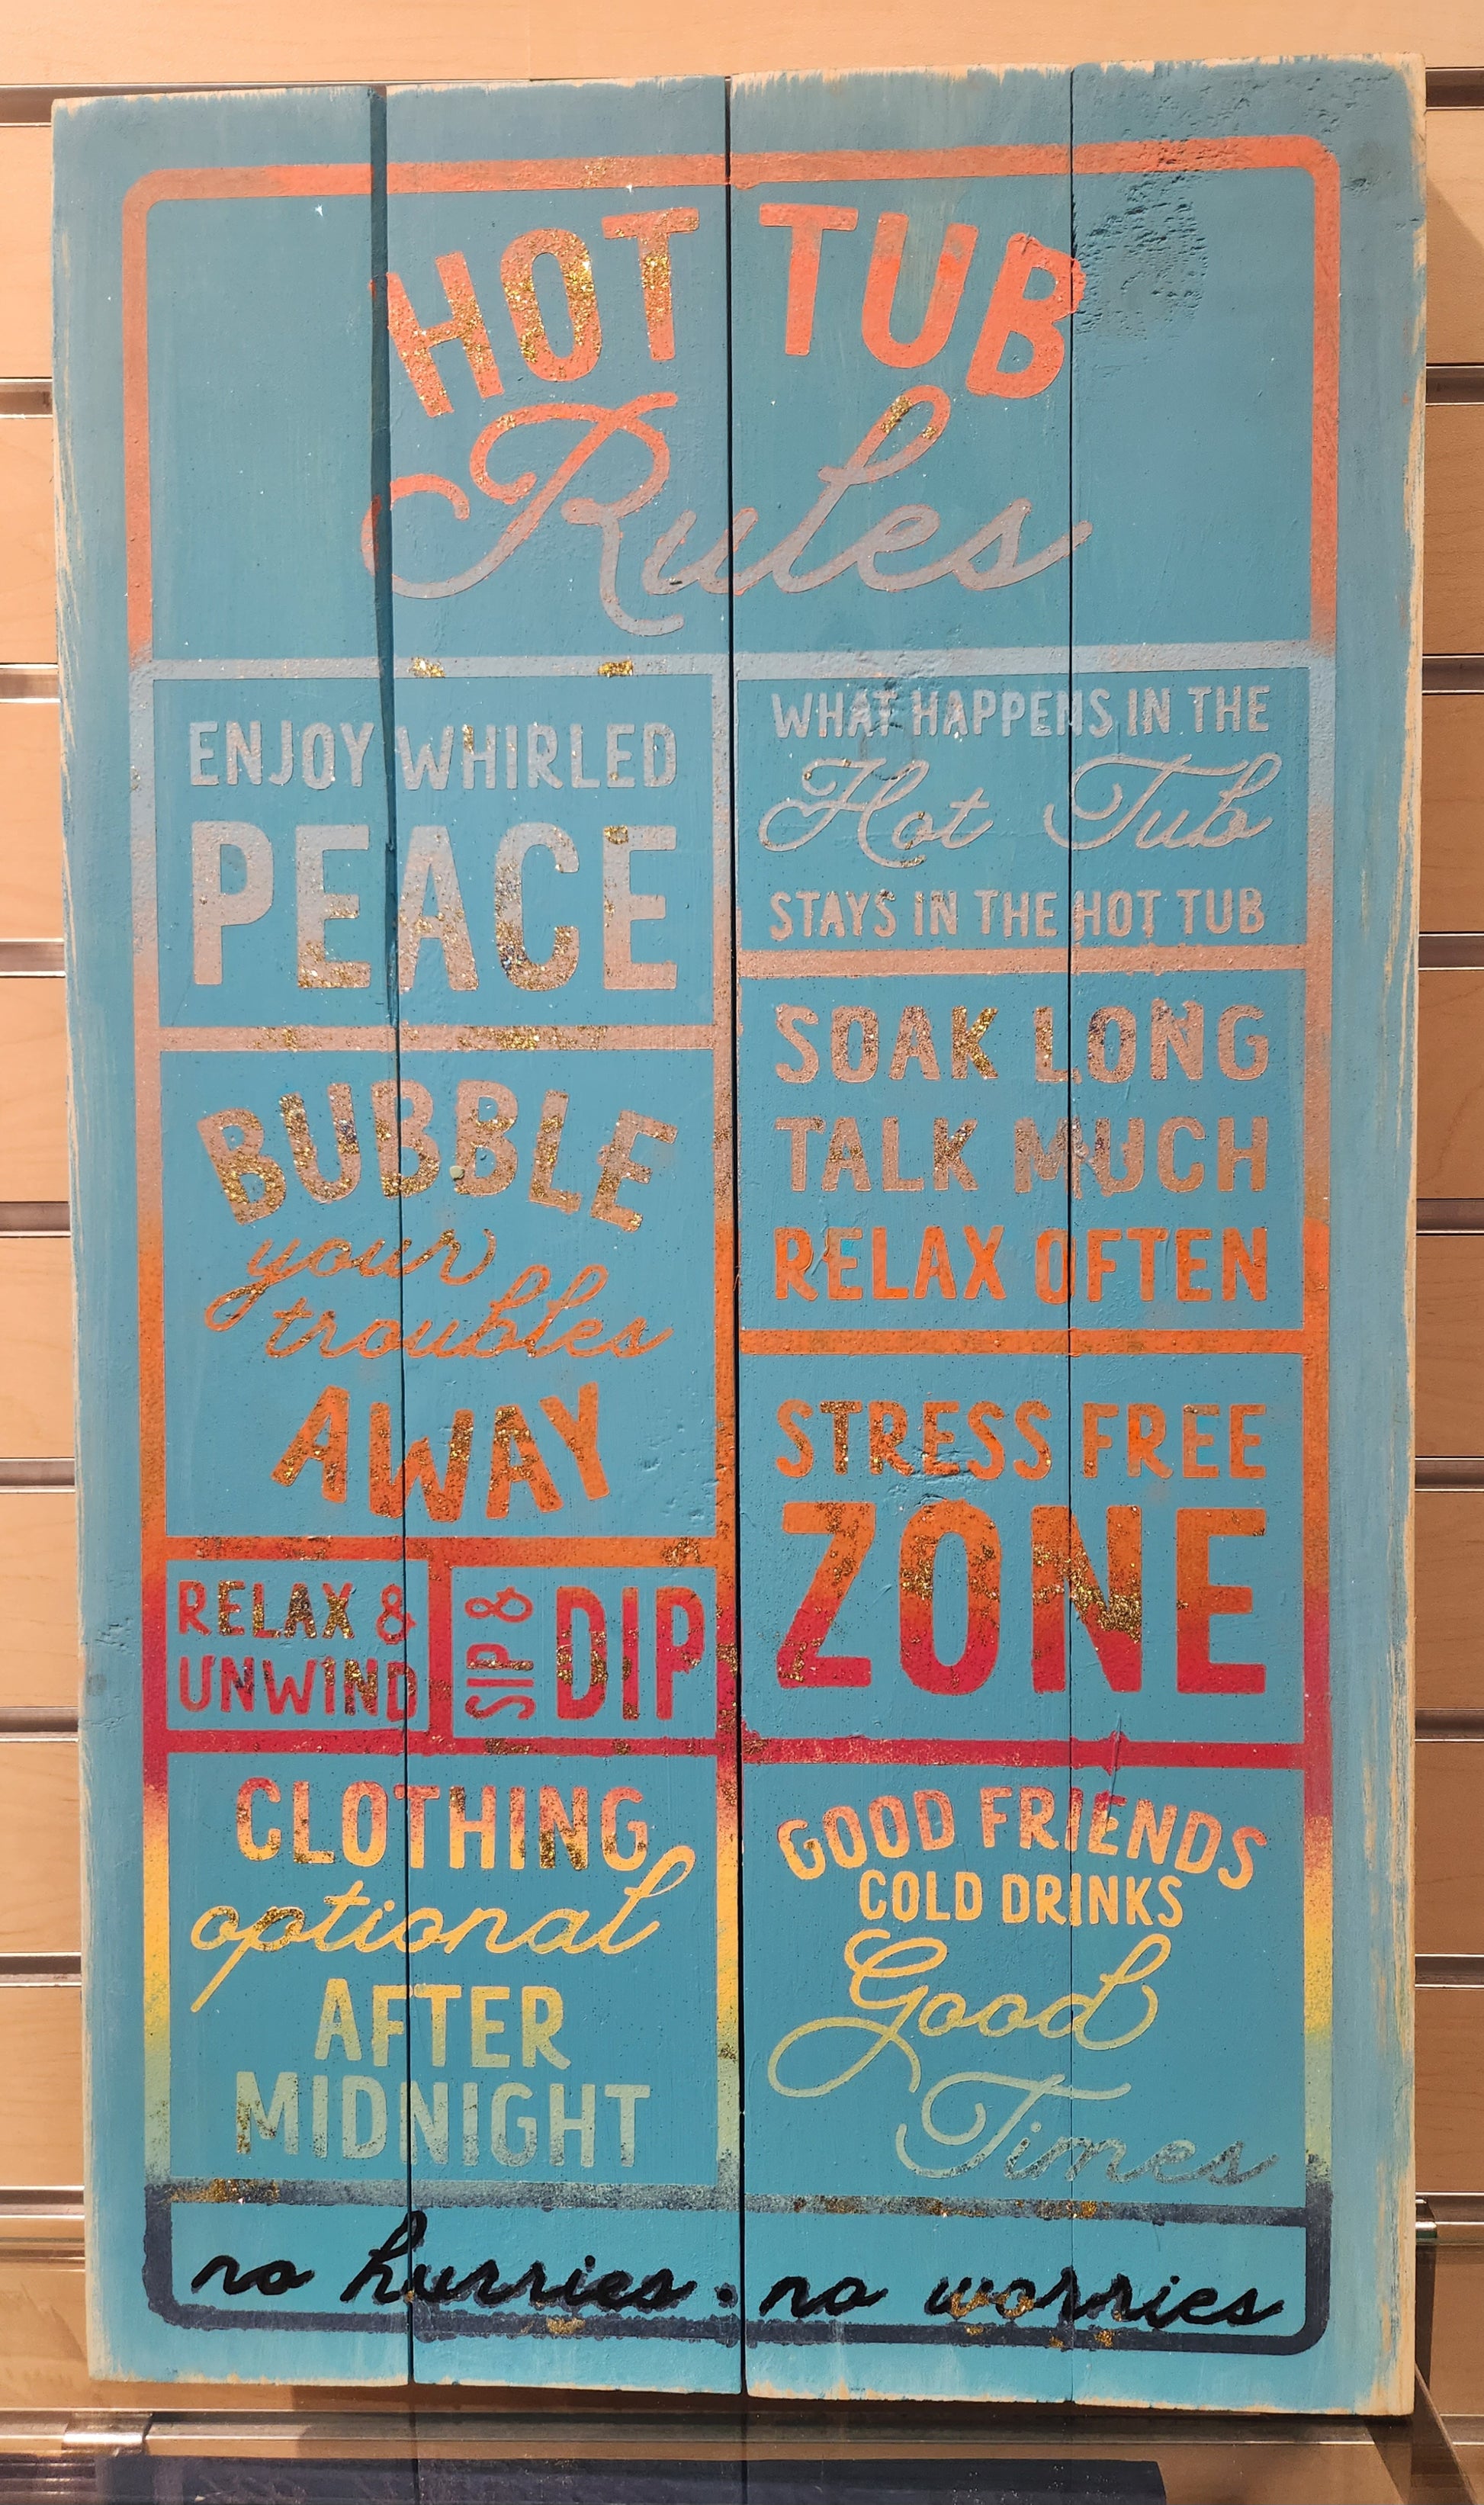 HOT TUB
Rules
ENJOY WHIRLED
PEACE
BUBBLE
your
troubles
AWAY
RELAX &
UNWIND
SIP &
DIP
CLOTHING
optional
AFTER
MIDNIGHT
WHAT HAPPENS IN THE
Hot Tub
STAYS IN THE HOT TUB
SOAK LONG
TALK MUCH
RELAX OFTEN
STRESS FREE
ZONE
GOOD FRIENDS
COLD DRINKS
Good
Times
no hurries · no worries